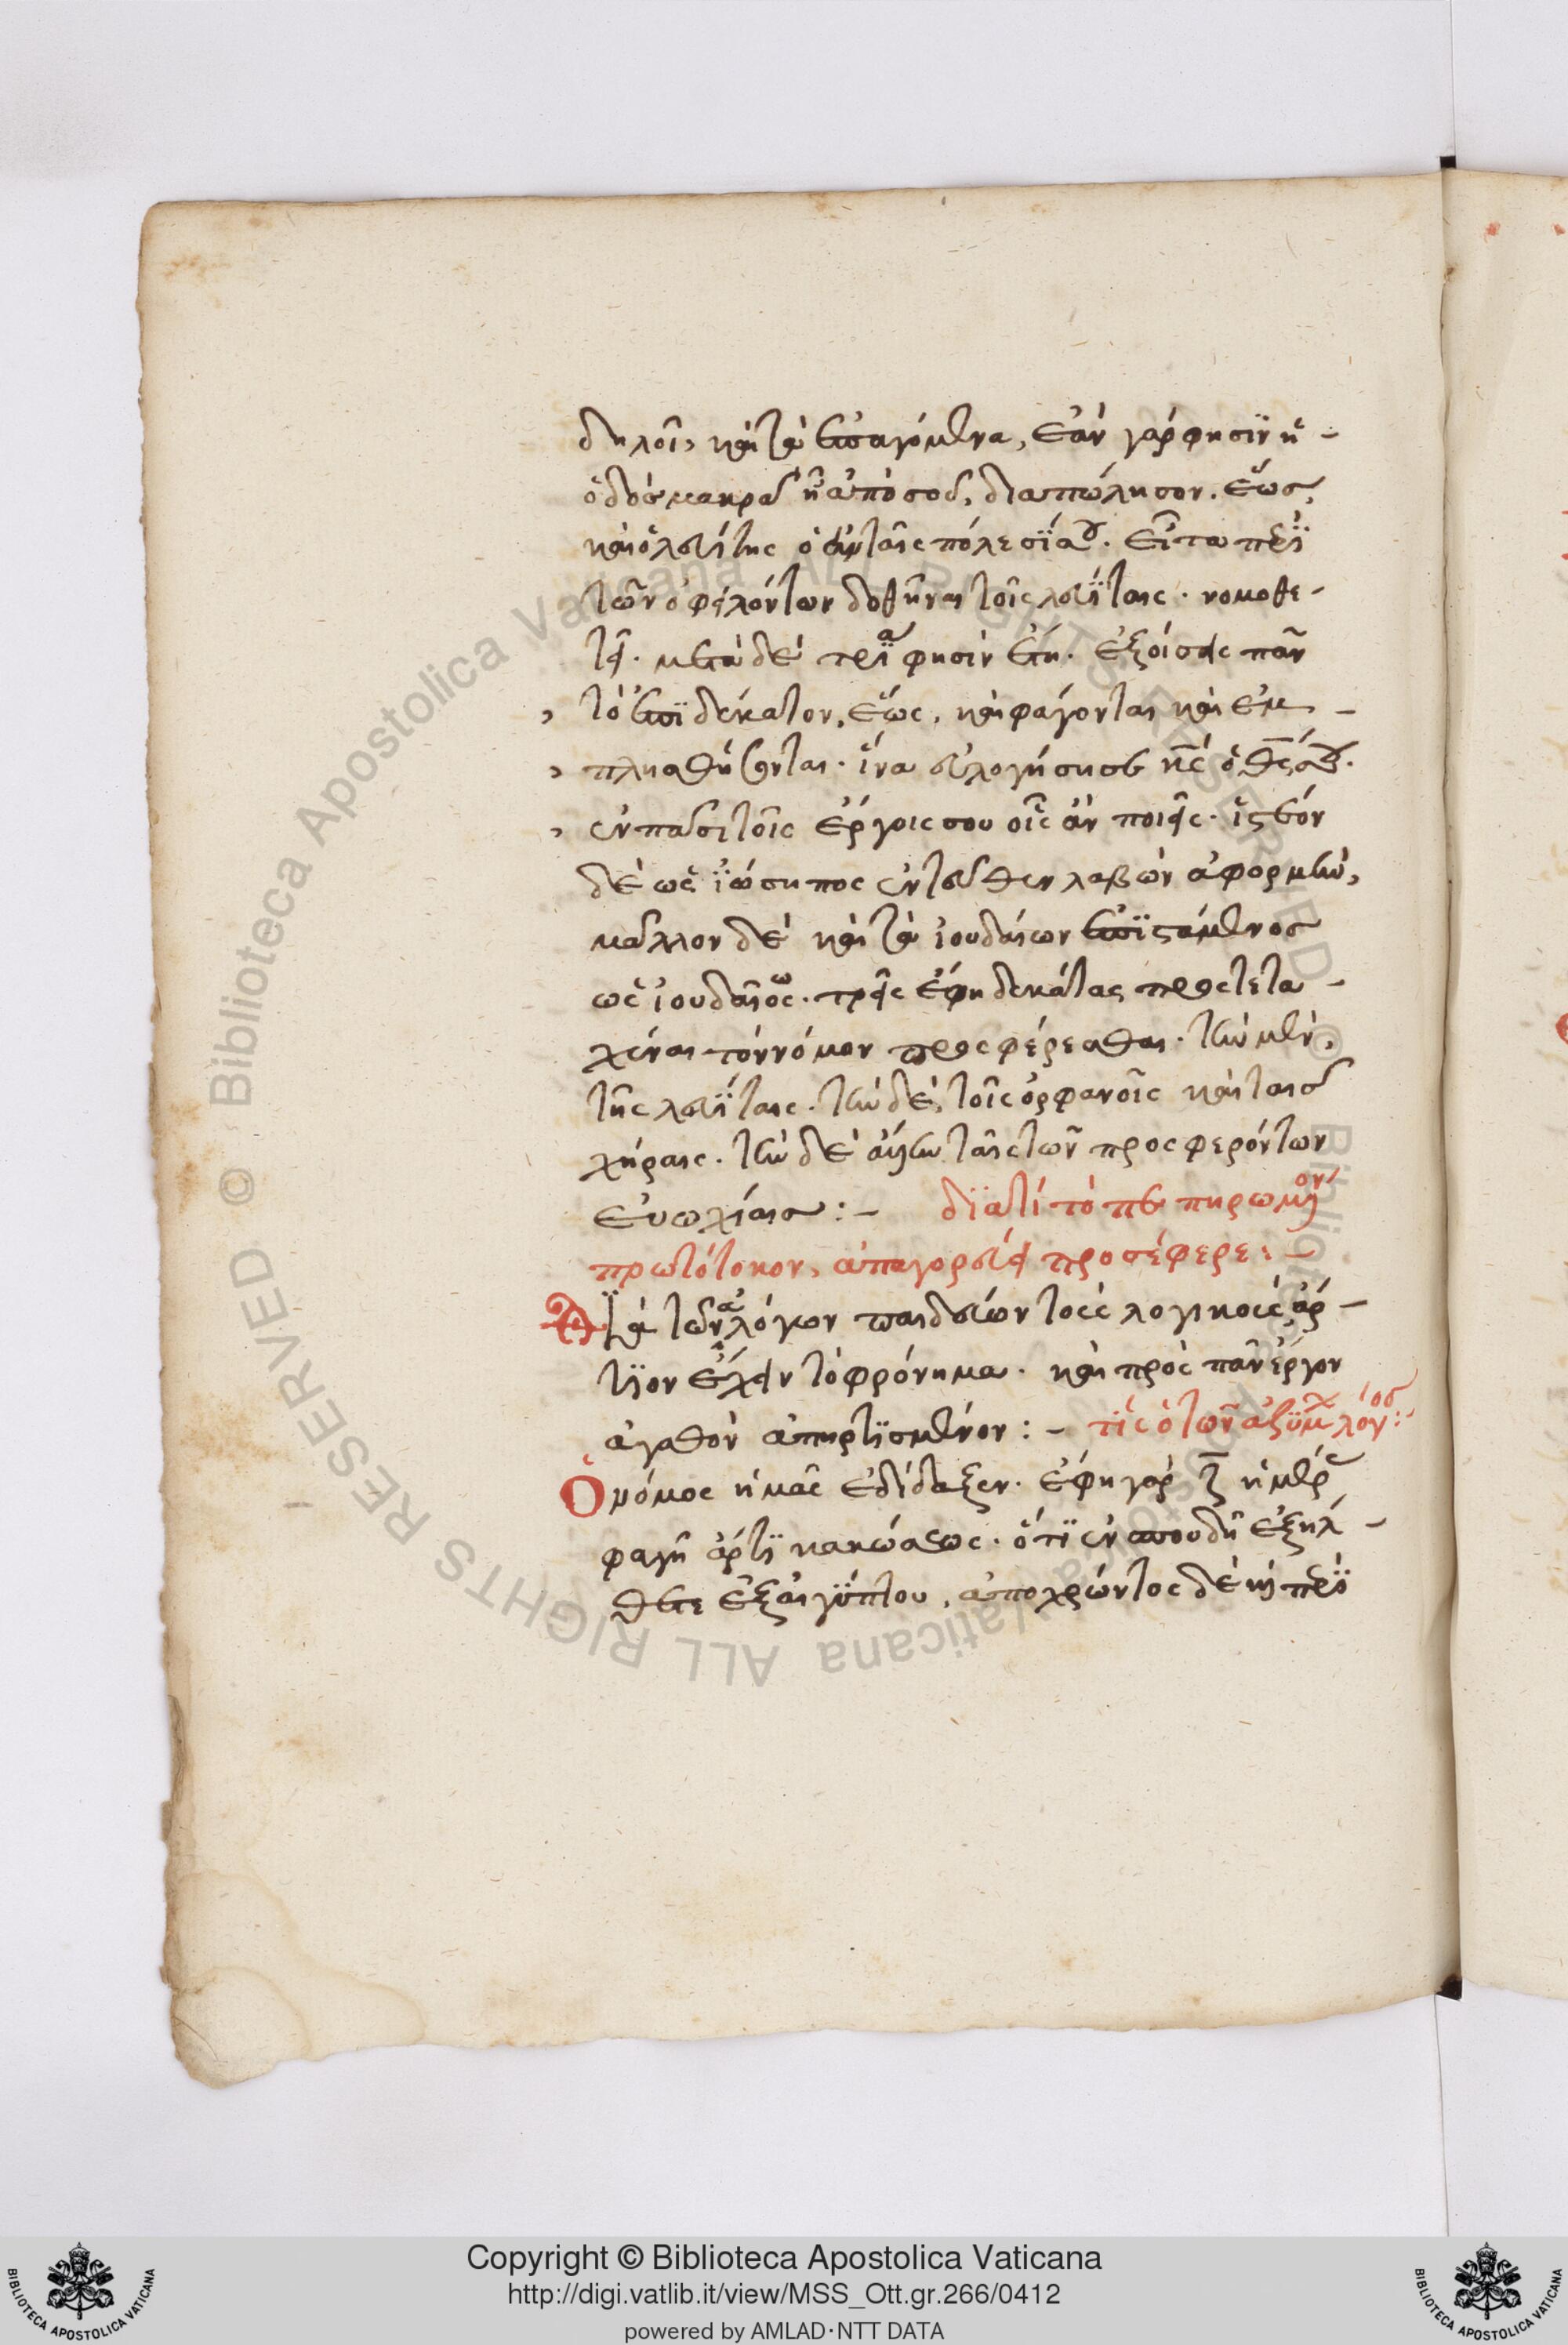 δηλοῖ, καὶ τὰ ἐπαγόμενα, ἐὰν γάρ φησϊν ἡ -
ὁδὸς μακρὰ ἦ ἀπὸ σοῦ, διαπώλησον. ἕως,
καὶ ὁ λευίτης ὁ ἐν ταῖς πόλεσϊ σου. εἶτα πε
τῶν ὀφειλόντων δοθῆναι τοῖς λευΐταις. νομοθε -
τεῖ. μετὰ δὲ τρία φησὶν ἔτη. ἐξοίσεις πᾶν
, τὸ ἐπϊδέκατον, ἕως, καὶ φάγονται καὶ ἐμ -
, πλησθήσονται. ἵνα εὐλογήση σε κς ὁ θς σου.
, ἐν πᾶσι τοῖς ἔργοις σου οἷς ἂν ποιῇς. ἰστέον
δὲ ὡς ϊώσηπος ἐντεῦθεν λαβὼν ἀφορμὴν,
μᾶλλον δὲ καὶ τὰ ἰουδαίων ἐπϊστάμενος
ὡς ἰουδαῖος. τρεῖς ἔφη δεκάτας προστετα -
χέναι τὸν νόμον προσφέρεσθαι. τὴν μὲν,
τῆς λευΐταις. τὴν δὲ, τοῖς ὀρφανοῖς καὶ ταῖς
χήραις. τὴν δὲ ἄλλην ταῖς τῶν προσφερόντων
εὐωχίαις : - δϊατί τὸ πεπηρωμένον
πρωτότοκον, ἀπαγορεύει προσφέρε : -
Δϊὰ τῶν ἀλόγων παιδεύων τοὺς λογικοὺς ἄρ -
τϊον ἔχειν τὸ φρόνημα. καὶ πρὸς πᾶν ἔργον
ἀγαθὸν ἀπηρτϊσμένον : - τίς ὁ τῶν ἀζύμων λόγος :
Ὁ νόμος ἡμᾶς ἐδίδαξεν. ἔφη γὰρ ζ ἡμέρας
φαγῆ ἄρτϊ κακώσεως. ὅτϊ ἐν σπουδῆ ἐξήλ -
θετε ἐξ αἰγύπτου, ἀποχρώντως δὲ καὶ περὶ
Copyright © Biblioteca Apostolica Vaticana
http://digi.vatlib.it/view/MSS_Ott.gr.266/0412
powered by AMLAD·NTT DATA
BIBLIOTECA APOSTOLICA VATICANA
BIBLIOTECA APOSTOLICA VATICANA
© Biblioteca Apostolica Vaticana ALL RIGHTS RESERVED
© Biblioteca Apostolica Vaticana ALL RIGHTS RESERVED